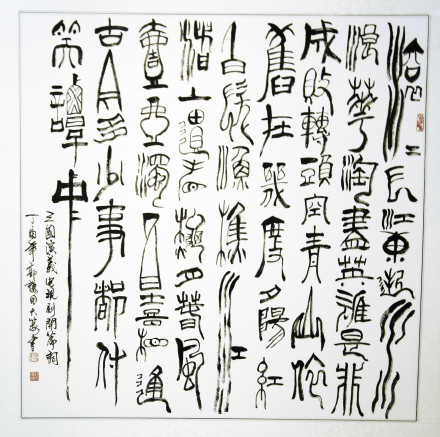 滾滾長江東逝水
浪華淘盡英雄是非
成敗轉頭空青山依
舊在幾度夕陽紅
白髮漁樵江
渚上慣看秋月春風
壹壺濁酒喜相逢
古今多少事都付
笑譚中
三國演義電視劇開篇詞
丁酉年郭田大篆書